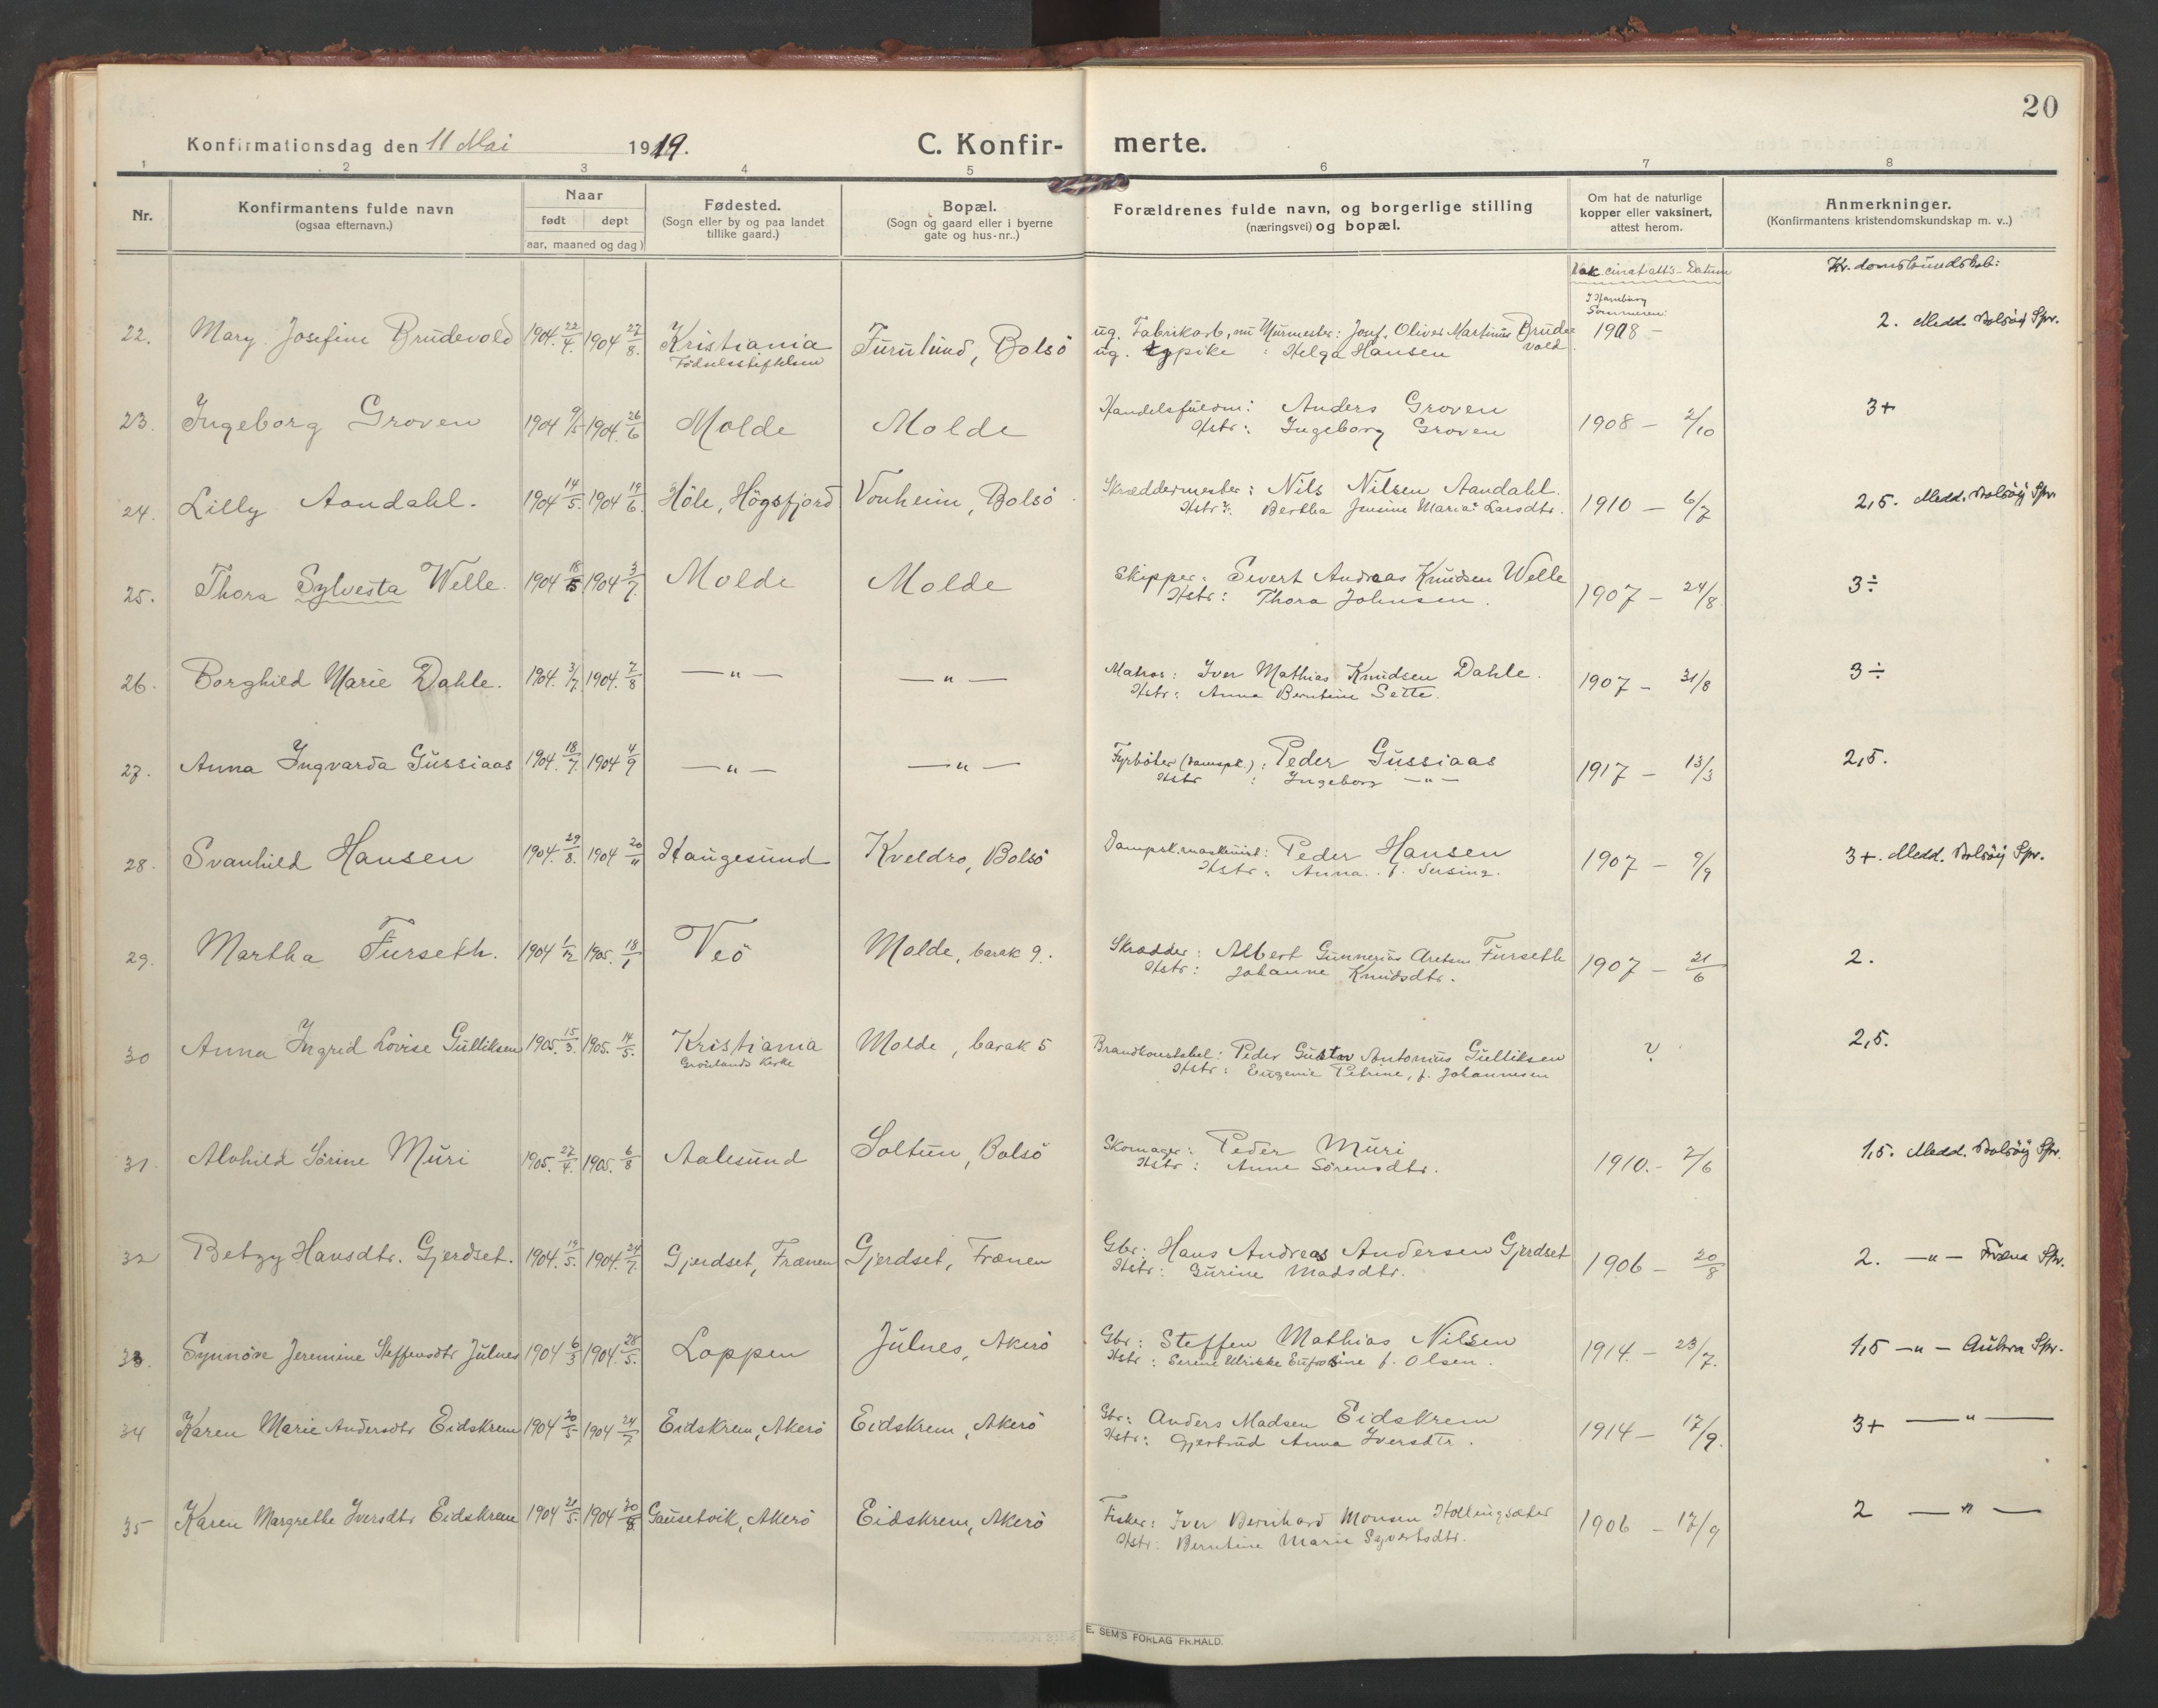 20
Konfirmationsdag den 11 Mai 1919.
C. Konfir- merte.
1 2 3 4 5 6 7 8
Nr.
Konfirmantens fulde navn
(ogsaa efternavn.)
Naar
født døpt
(aar, maaned og dag)
Fødested.
(Sogn eller by og paa landet
tillike gaard.)
Bopæl.
(Sogn og gaard eller i byerne
gate og hus-nr..)
Forældrenes fulde navn, og borgerlige stilling
(næringsvei) og bopæl.
Om hat de naturlige
kopper eller vaksinert,
attest herom.
Anmerkninger.
(Konfirmantens kristendomskundskap m. v..)
Vakcinatatt's - Datum
Kr.domskundskab:
22. Mary Josefine Brudevold 1904. 22/7. 1904 27/8. Kristiania Furulund, Bolsö ug. Fabrikarb, nu Murmester: Josef Oliver Martinus Brude- 1908 - 2. Medd. Bolsöy Spr.
Födselsstiftelsen ug. pike : Helga Hansen vold
I Hamburg
Sommeren
23. Ingeborg Groven 1904 9/5 1904. 26/6 Molde Molde Handelsfuldm: Anders Groven 1908 - 2/10 3+
Hstr: Ingeborg Groven
24. Lilly Aandahl. 1904 14/5. 1904 19/6. Höle, Högsfjord Vonheim, Bolsö Skræddermester: Nils Nilsen Aandahl. 1910 - 6/7 2,5. Medd. Bolsöy Spr.
Hstr: Bertha Jensine Maria Larsdtr.
25. Thora Sylvesta Welle. 1904 18/5 1904 3/7. Molde Molde Skipper: Sivert Andreas Knudsen Welle 1907 - 24/8. 3÷
Hstr: Thora Johnsen.
26. Borghild Marie Dahle. 1904. 3/7. 1904. 7/8 - " - - " - Matros: Iver Mathias Knudsen Dahle. 1907 - 31/8 3÷
Hstr: Anna Berntine Sette.
27. Anna Ingvarda Gussiaas 1904. 18/7. 1904 4/9 - " - - " - Fyrböter (dampsk.): Peder Gussiaas 1917 - 13/3 2,5.
Hstr : Ingeborg - " -
28. Svanhild Hansen 1904. 29/8. 1904 20/11 Haugesund Kveldro, Bolsö Dampsk.maskinist: Peder Hansen 1907 - 9/9 3+. Medd. Bolsöy Spr.
Hstr: Anna. f.
29. Martha Furseth. 1904 1/12 1905. 18/1 Veö Molde, barak 9. Skrædder: Albert Gunnerius Furseth 1907 - 21/6 2.
Hstr: Johanne Knudsdtr.
30 Anna Ingrid Lovise Gulliksen 1905. 15/3. 1905. 14/5. Kristiania Molde, barak 5 Brandkonstabel: Peder Gustav Antonius Gulliksen ? 2,5.
Grönlands Kirke Hstr: Eugenie Petrine, f. Johannesen
31. Alvhild Sörine Muri 1905. 27/4. 1905. 6/8 Aalesund Soltun, Bolsö Skomager: Peder Muri 1910. - 2/6 1,5. Medd. Bolsöy Spr.
Hstr: Anne Sörensdtr.
32 Betzy Hansdtr. Gjerdset. 1904. 19/5. 1904. 24/7 Gjerdset, Frænen Gjerdset, Frænen Gbr: Hans Andreas Andersen Gjerdset 1906 - 20/8 2. - " - Fræna Spr.
Hstr: Gurine Madsdtr.
33. Synnöve Jeremine Steffensdtr Julnes 1904 6/3 1904. 28/5. Loppen Julnes, Akerö Gbr: Steffen Mathias Nilsen 1914. - 23/7. 1,5 - " - Aukra Spr.
Hstr: Serene Ulrikke Eufrosine f. Olsen.
34 Karen Marie Andersdtr Eidskrem 1904 20/5 1904 24/7 Eidskrem, Akerö Eidskrem, Akerö Gbr: Anders Madsen Eidskrem 1914 - 17/9. 3+ - " -
Hstr: Gjertrud Anna Iversdtr.
35 Karen Margrethe Iversdtr Eidskrem 1904 21/5. 1904 30/8 Gausetvik, Akerö Eidskrem, Akerö Fisker: Iver Bernhard Monsen Hollingsæter 1906 - 17/9 2 - " -
Hstr: Berntine Marie Syvertsdtr.
E. SEM'S FORLAG FR.HALD.